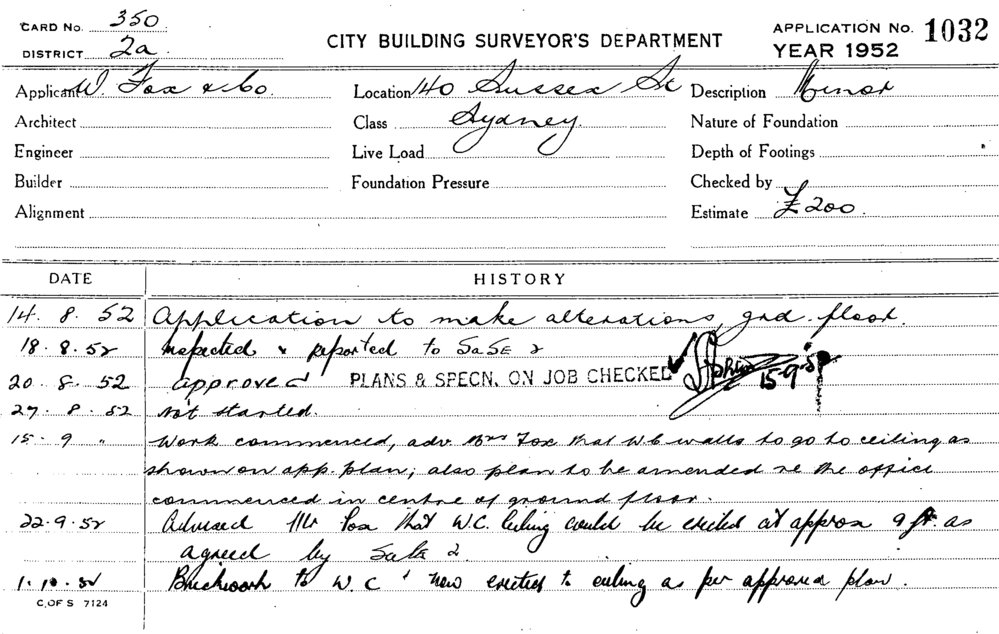 CARD No. 350
DISTRICT 2a.
CITY BUILDING SURVEYOR'S DEPARTMENT
APPLICATION No. 1032
YEAR 1952
Applicant W. Fox & Co. Location 140 Sussex St Description Minor
Architect Class Sydney. Nature of Foundation
Engineer Live Load Depth of Footings
Builder Foundation Pressure Checked by
Alignment Estimate £200.
DATE HISTORY
14. 8. 52 Application to make alterations, grd. floor.
18. 8. 52 Inspected & reported to SaSE 2
20. 8. 52 approved PLANS & SPECN. ON JOB CHECKED 15.9.52
27. 8. 52 Not started.
15. 9 " Work commenced, adv. Fox that WC walls to go to ceiling as
shown on app. plan; also plan to be amended re the office
commenced in centre of ground floor.
22.9.52 Advised Mr Fox that W.C. ceiling could be erected at approx 9 ft as
agreed by 2.
1.10.52 Brickwork to W.C now erected to ceiling as per approved plan.
C. OF S 7124